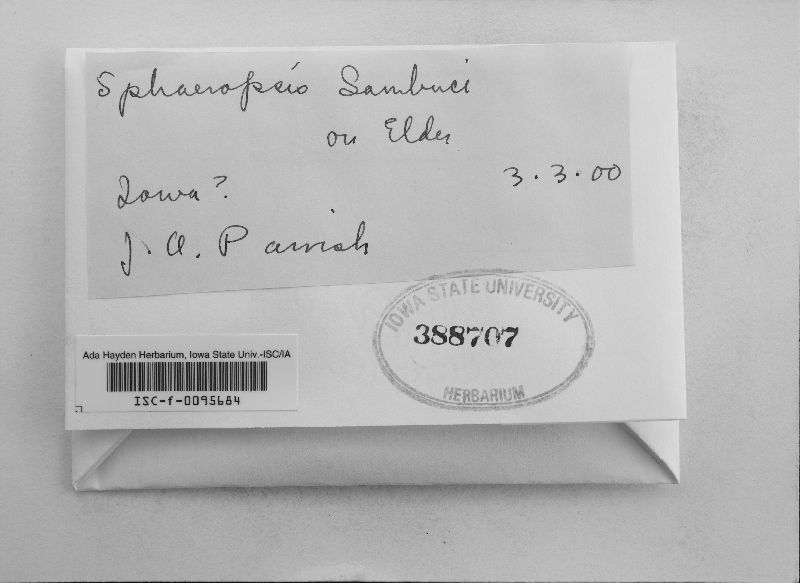 Sphaeropsis Sambuci
on Elder
Iowa? 3.3.00
J. A. Parrish
IOWA STATE UNIVERSITY
388707
HERBARIUM
Ada Hayden Herbarium, Iowa State Univ.-ISC/IA
ISC-f-0095684